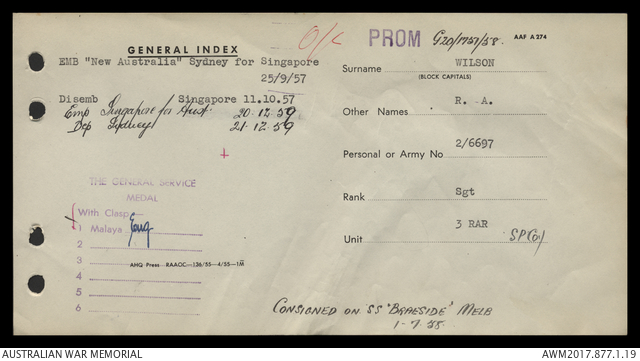 GENERAL INDEX
O/C PROM G20/1757/58. AAF A 274
EMB "New Australia" Sydney for Singapore
25/9/57
Disemb Singapore 11.10.57
Emp Singapore for Aust. 20.12.59
Dep Sydney 21.12.59
THE GENERAL SERVICE
MEDAL
With Clasp
1 Malaya
2
3
4
5
6
AHQ Press RAAOC—136/55—4/55—1M
Surname WILSON
(BLOCK CAPITALS)
Other Names R. A.
Personal or Army No 2/6697
Rank Sgt
Unit 3 RAR SP Coy
CONSIGNED ON SS "BRAESIDE" MELB
1-7-58.
AUSTRALIAN WAR MEMORIAL
AWM2017.877.1.19